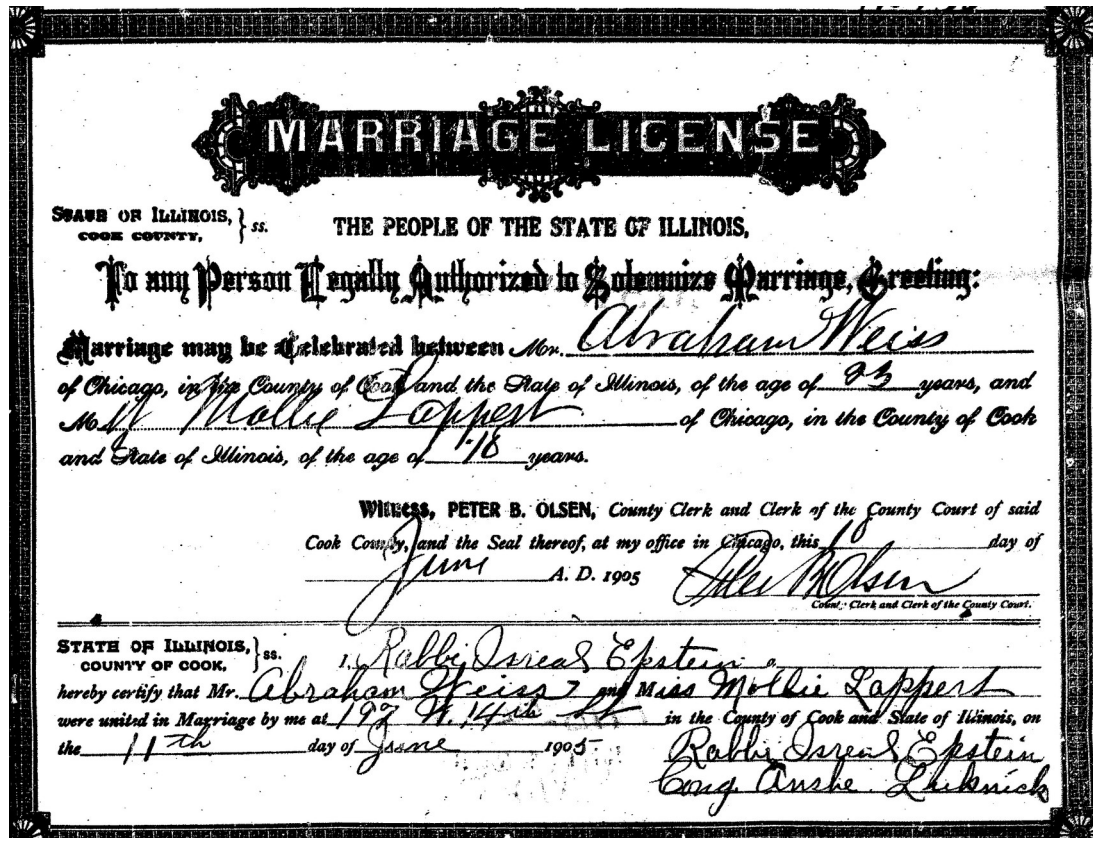 MARRIAGE LICENSE
STATE OF ILLINOIS,
COOK COUNTY, } ss.
THE PEOPLE OF THE STATE OF ILLINOIS,
To any Person Legally Authorized to Solemnize Marriage, Greeting:
Marriage may be Celebrated between Mr. Abraham Weiss
of Chicago, in the County of Cook and the State of Illinois, of the age of 23 years, and
M Mollie Lappert of Chicago, in the County of Cook
and State of Illinois, of the age of 18 years.
Witness, PETER B. OLSEN, County Clerk and Clerk of the County Court of said
Cook County, and the Seal thereof, at my office in Chicago, this 10 day of
June A. D. 1905 Peter B Olsen
County Clerk and Clerk of the County Court.
STATE OF ILLINOIS,
COUNTY OF COOK, } ss. I, Rabbi Isreal Epstein a
hereby certify that Mr. Abraham Weiss and Miss Mollie Lappert
were united in Marriage by me at 197 W. 14th St in the County of Cook and State of Illinois, on
the 11th day of June 1905 Rabbi Isreal Epstein
Cong. Anshe Luknick